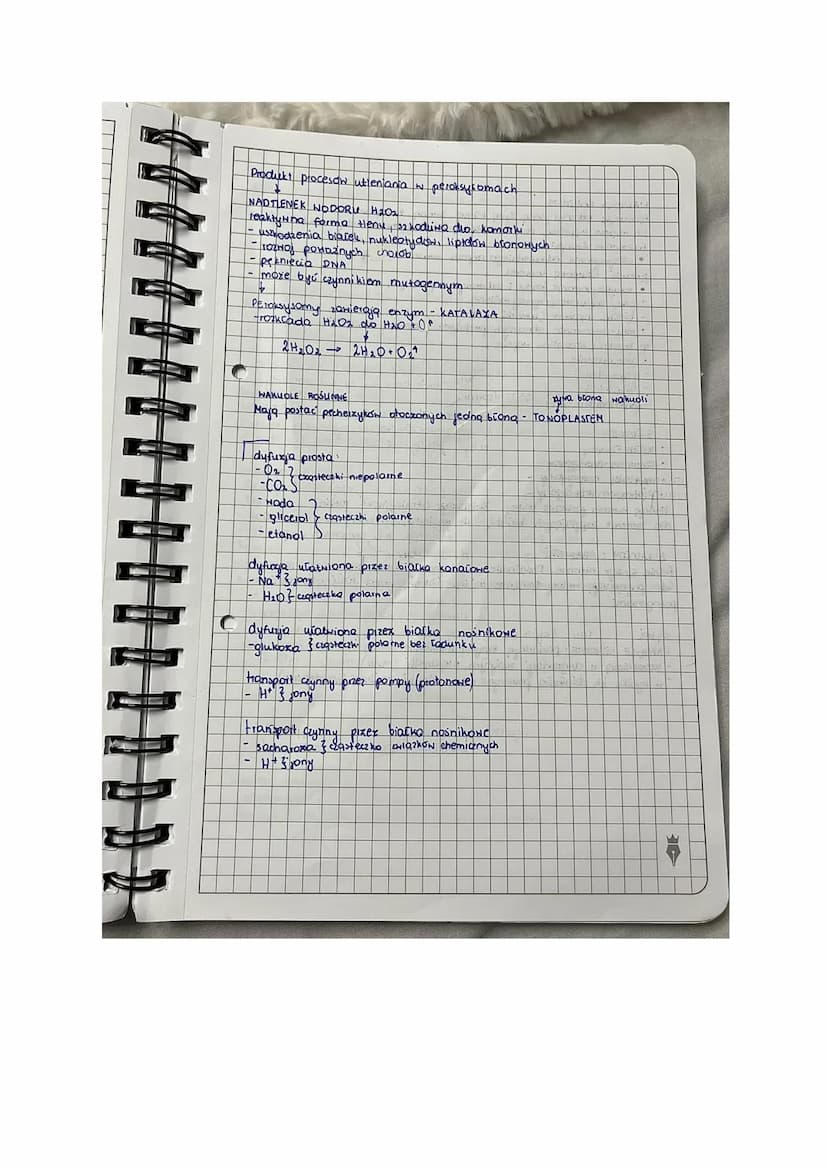 Produkt procesów utleniania w peroksysomach
↓
NADTLENEK WODORU H₂O₂
reaktywna forma tlenu, szkodliwa dla komórki
- uszkodzenia białek, nukleotydów, lipidów błonowych
- rozwój poważnych chorób
- pęknięcia DNA
- może być czynnikiem mutogennym
↓
Peroksysomy zawierają enzym - KATALAZA
- rozkłada H₂O₂ do H₂O + O↑
↓
2H₂O₂ → 2H₂O + O₂↑
WAKUOLE ROŚLINNE
żywa błona wakuoli
Mają postać pęcherzyków otoczonych jedną błoną - TONOPLASTEM
dyfuzja prosta:
- O₂ } cząsteczki niepolarne
- CO₂
- woda
- glicerol } cząsteczki polarne
- etanol
dyfuzja ułatwiona przez białka kanałowe
- Na⁺ } jony
- H₂O } cząsteczka polarna
dyfuzja ułatwiona przez białka nośnikowe
- glukoza } cząsteczki polarne bez ładunku
transport czynny przez pompy (protonowe)
- H⁺ } jony
transport czynny przez białka nośnikowe
- sacharoza } cząsteczka związków chemicznych
- H⁺ } jony